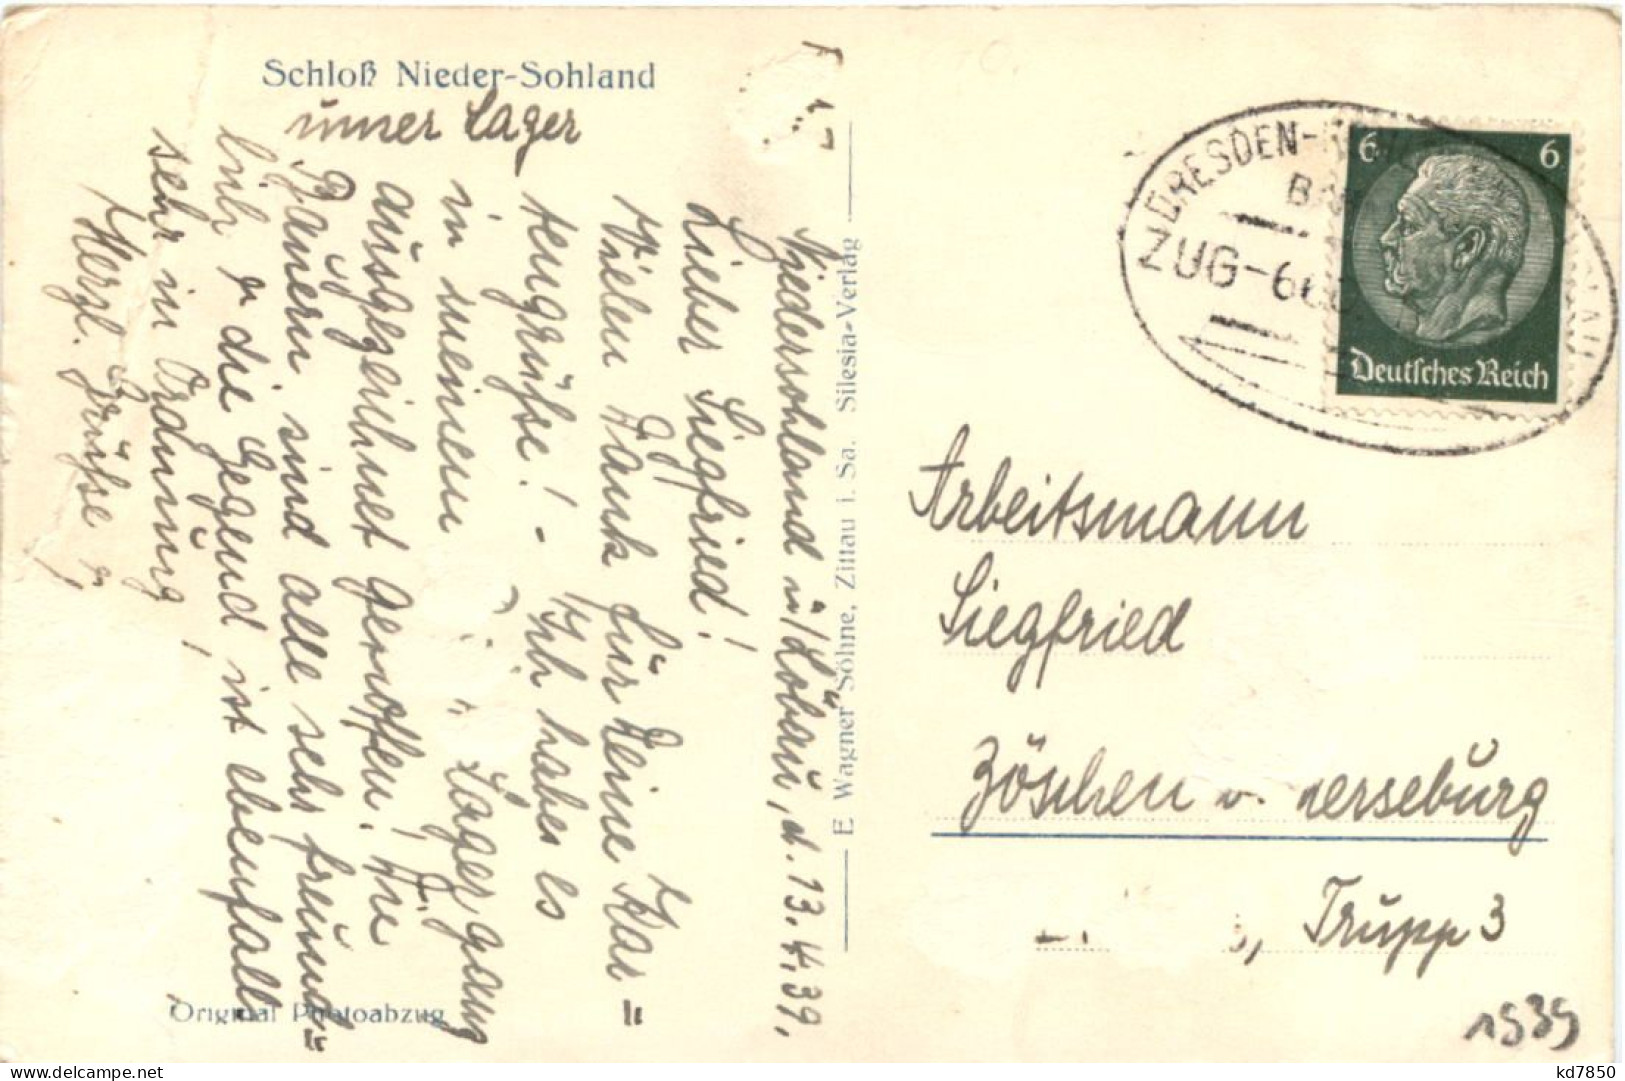 Schloß Nieder-Sohland
unser Lager
Niedersohland ü/Löbau, d. 13.4.39.
Lieber Siegfried!
Vielen Dank für Deine Kar=
tengrüße! - Ich habe es
in meinem Lager ganz
ausgezeichnet getroffen! Die
Bauern sind alle sehr freund=
lich u. die Gegend ist ebenfalls
sehr in Ordnung!
Herzl. Grüße
Original Photoabzug
E Wagner Söhne, Zittau i. Sa. Silesia-Verlag
DRESDEN-
ZUG-
6 6
Deutsches Reich
Arbeitsmann
Siegfried
Zöschen b. Merseburg
Trupp 3
1939
kd7850